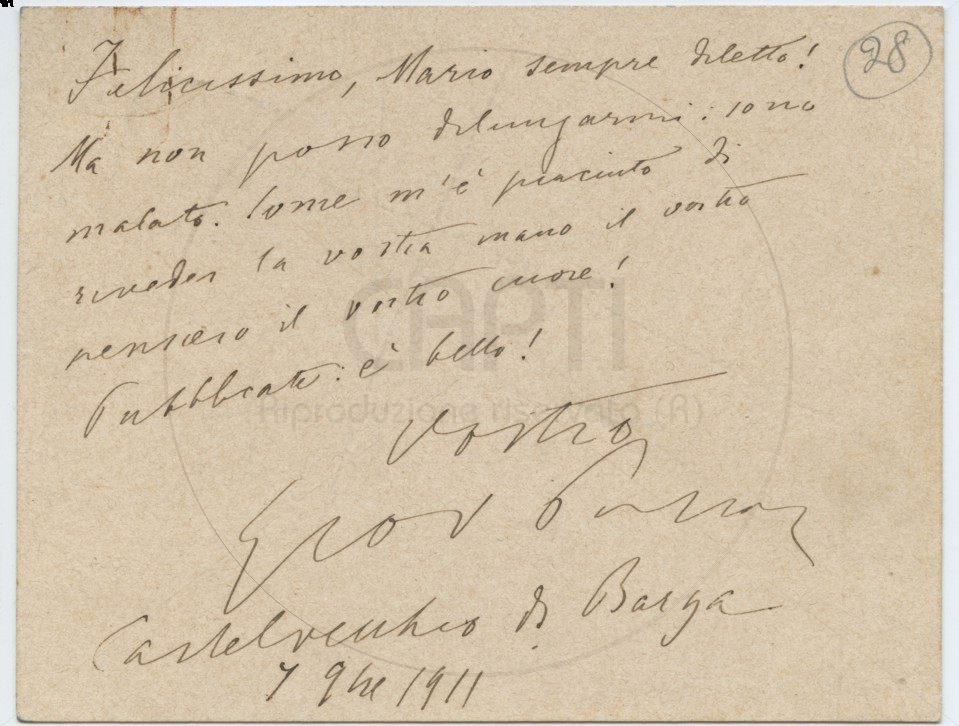 28
Felicissimo, Mario sempre diletto!
Ma non posso dilungarmi: sono
malato. Come m'è piaciuto di
riveder la vostra mano il vostro
pensiero il vostro cuore!
Pubblicate: è bello!
Vostro
Giov Pascoli
Castelvecchio di Barga
7 9bre 1911
CAPTI
Riproduzione riservata (A)